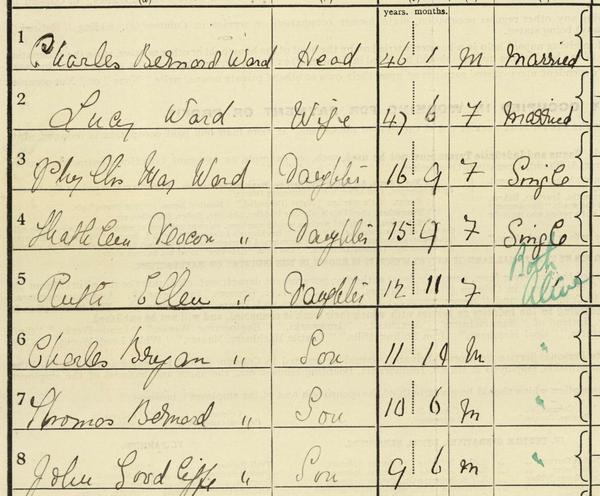 years. months.
1 Charles Bernard Ward Head 46 1 M Married
2 Lucy Ward Wife 47 6 F Married
3 Phyllis May Ward Daughter 16 9 F Single
4 Kathleen " Daughter 15 9 F Single
5 Ruth Ellen " Daughter 12 11 F Both Alive
6 Charles Bryan " Son 11 10 M "
7 Thomas Bernard " Son 10 6 M "
8 John " Son 9 6 M "